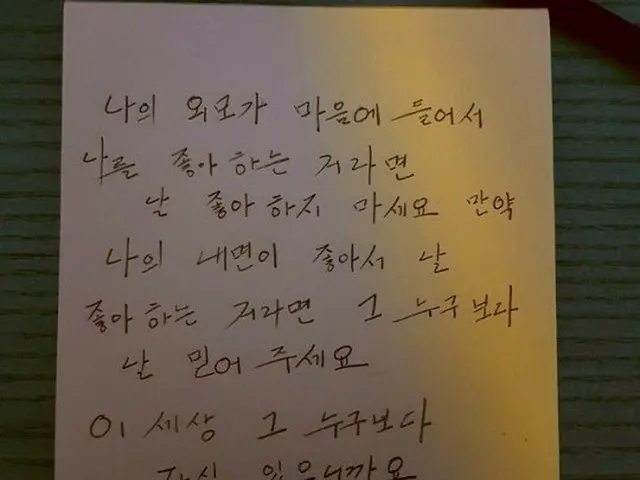 나의 외모가 마음에 들어서
나를 좋아하는 거라면
날 좋아하지 마세요 만약
나의 내면이 좋아서 날
좋아하는 거라면 그 누구보다
날 믿어 주세요
이 세상 그 누구보다
자신 있으니까요